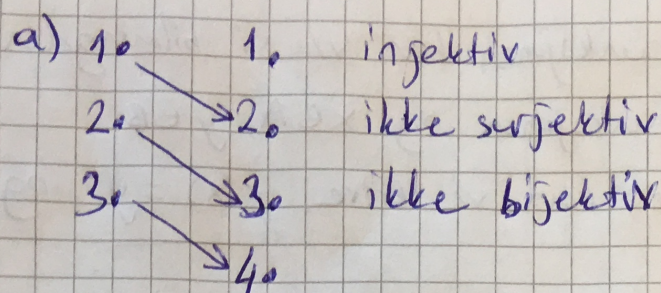 a) 1. 1. injektiv
2. 2. ikke surjektiv
3. 3. ikke bijektiv
4.